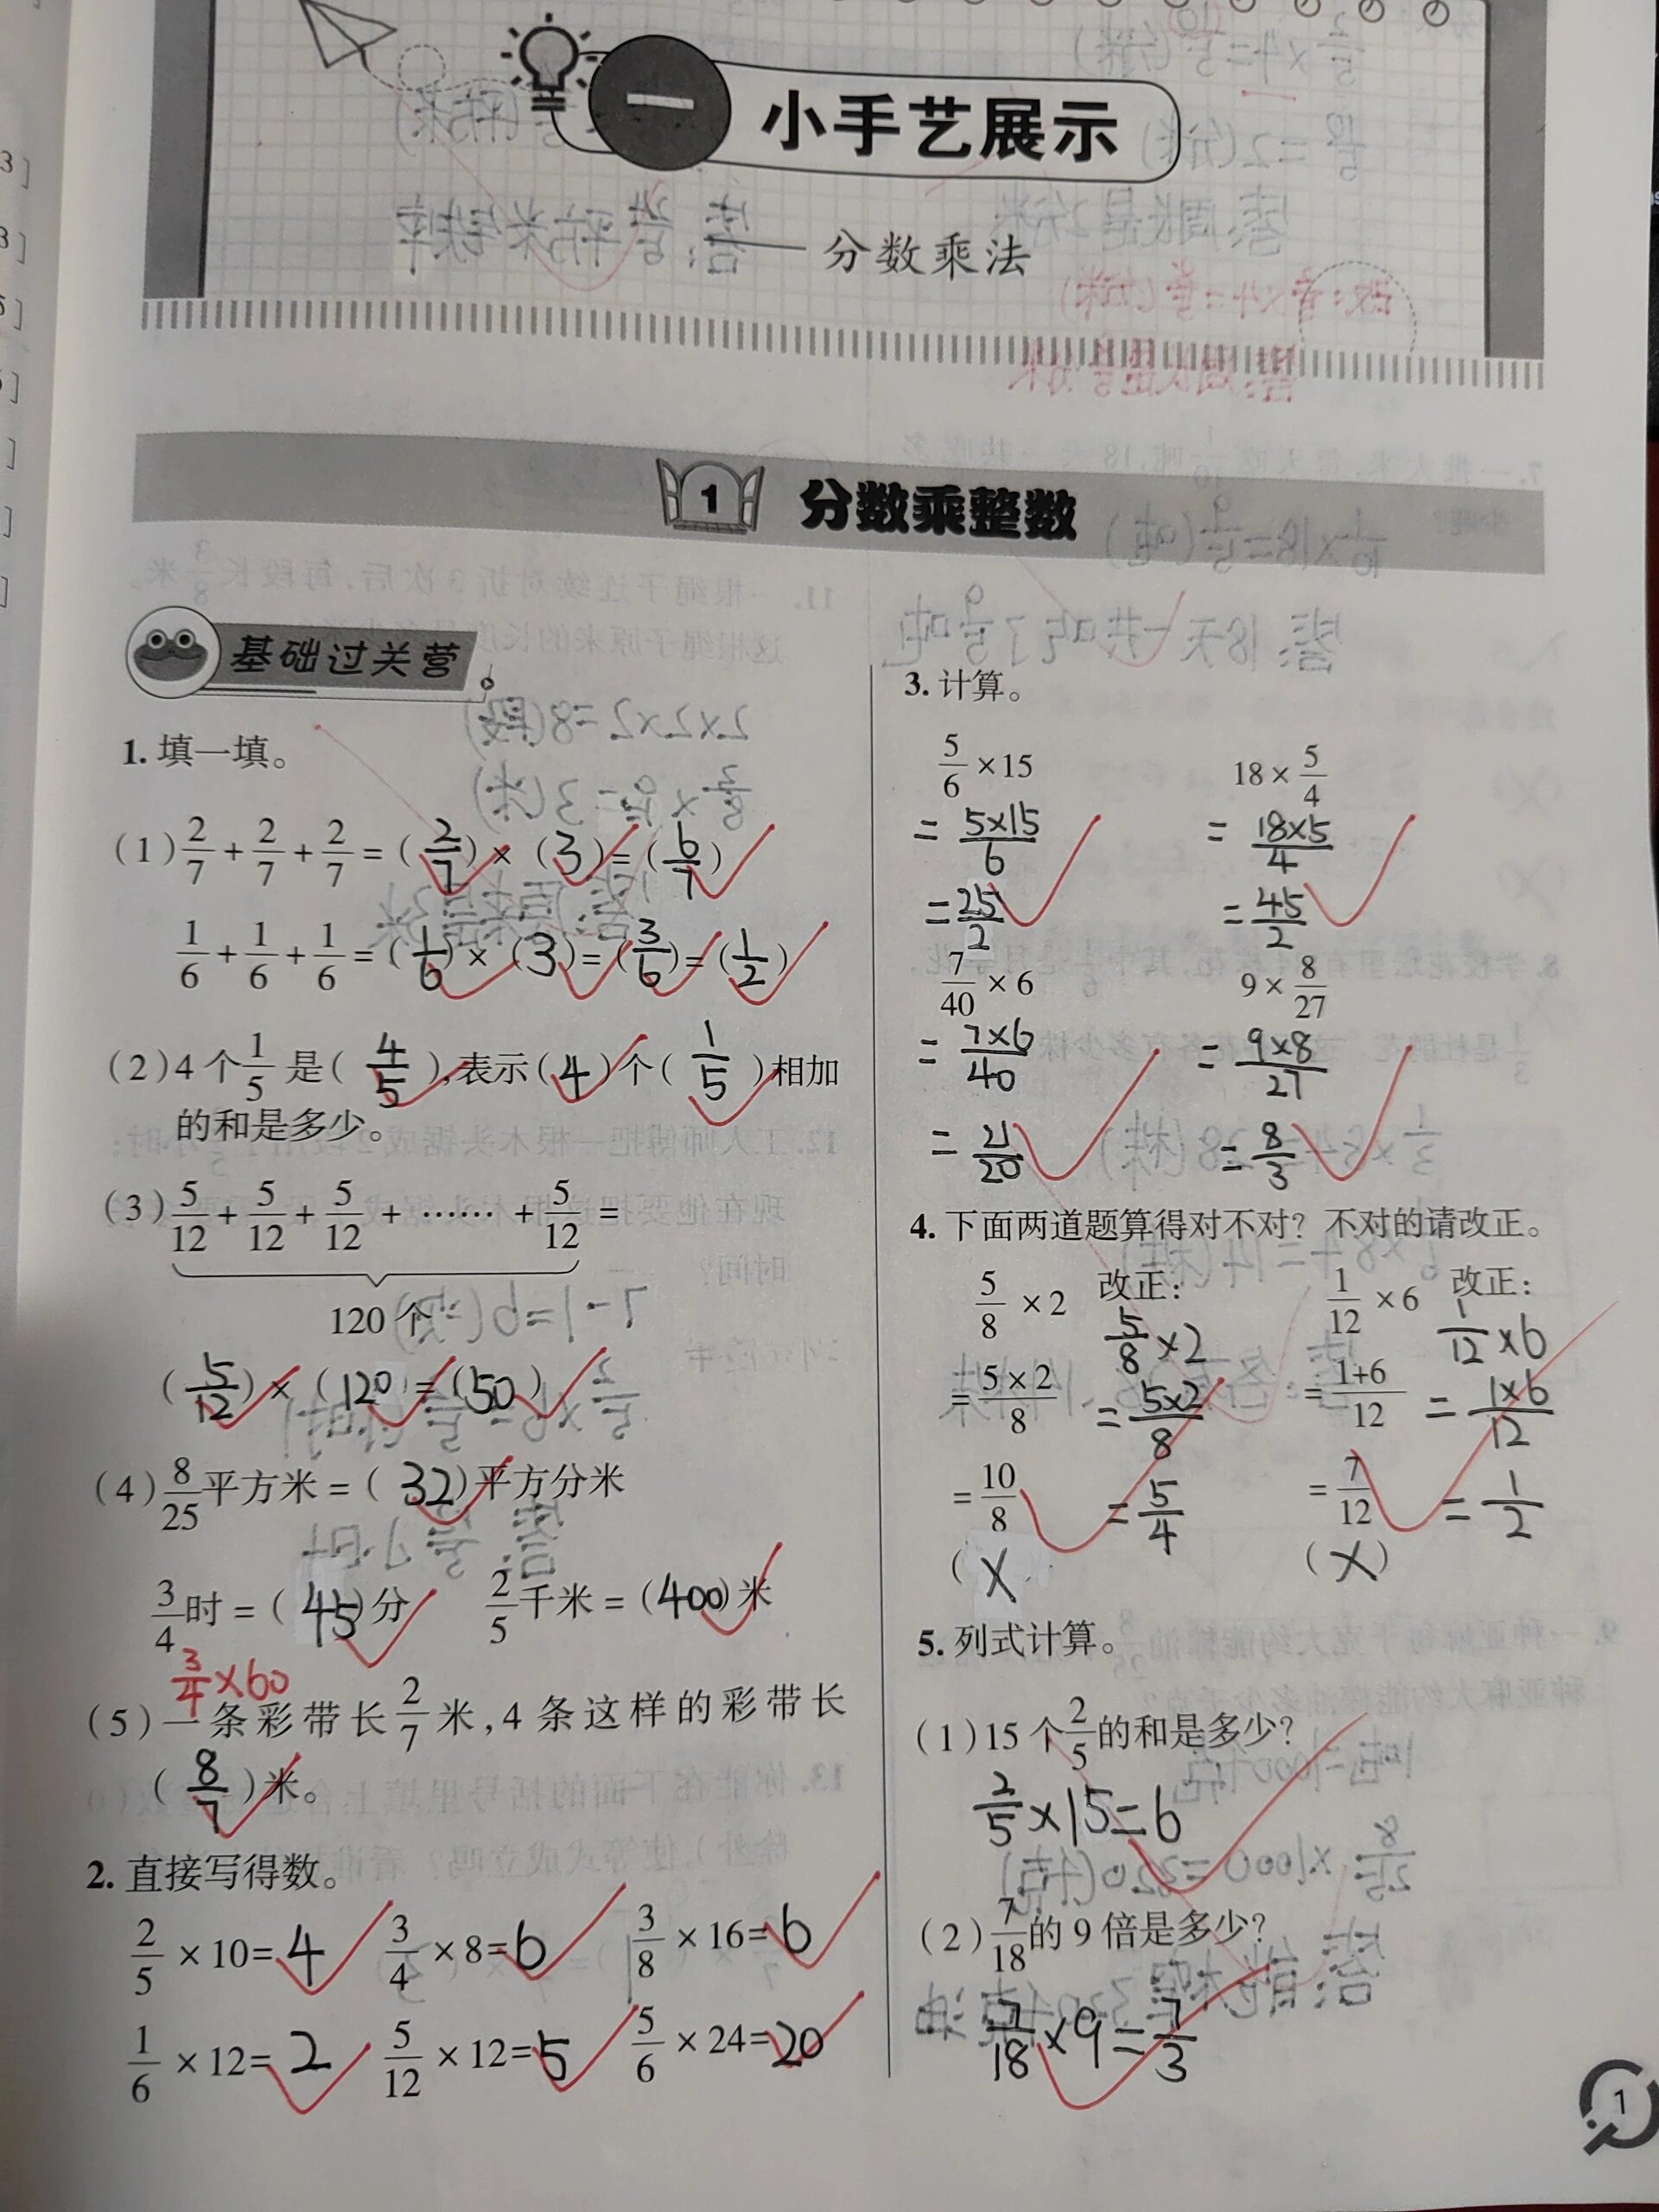 一 小手艺展示
——分数乘法
1 分数乘整数
基础过关营
1. 填一填。
(1) 2/7 + 2/7 + 2/7 = ( 2/7 ) × ( 3 ) = ( 6/7 )
1/6 + 1/6 + 1/6 = ( 1/6 ) × ( 3 ) = ( 3/6 ) = ( 1/2 )
(2) 4 个 1/5 是 ( 4/5 ), 表示 ( 4 ) 个 ( 1/5 ) 相加
的和是多少。
(3) 5/12 + 5/12 + 5/12 + …… + 5/12 =
120 个
( 5/12 ) × ( 120 ) = ( 50 )
(4) 8/25 平方米 = ( 32 ) 平方分米
3/4 时 = ( 45 ) 分 2/5 千米 = ( 400 ) 米
3/4 × 60
(5) 一条彩带长 2/7 米, 4 条这样的彩带长
( 8/7 ) 米。
2. 直接写得数。
2/5 × 10 = 4 3/4 × 8 = 6 3/8 × 16 = 6
1/6 × 12 = 2 5/12 × 12 = 5 5/6 × 24 = 20
3. 计算。
5/6 × 15 18 × 5/4
= 5×15/6 = 18×5/4
= 25/2 = 45/2
7/40 × 6 9 × 8/27
= 7×6/40 = 9×8/27
= 21/20 = 8/3
4. 下面两道题算得对不对? 不对的请改正。
5/8 × 2 改正: 1/12 × 6 改正:
5/8 × 2 1/12 × 6
= 5×2/8 = 5×2/8 = 1+6/12 = 1×6/12
= 10/8 = 5/4 = 7/12 = 1/2
( X ( X )
5. 列式计算。
(1) 15 个 2/5 的和是多少?
2/5 × 15 = 6
(2) 7/18 的 9 倍是多少?
7/18 × 9 = 7/3
1